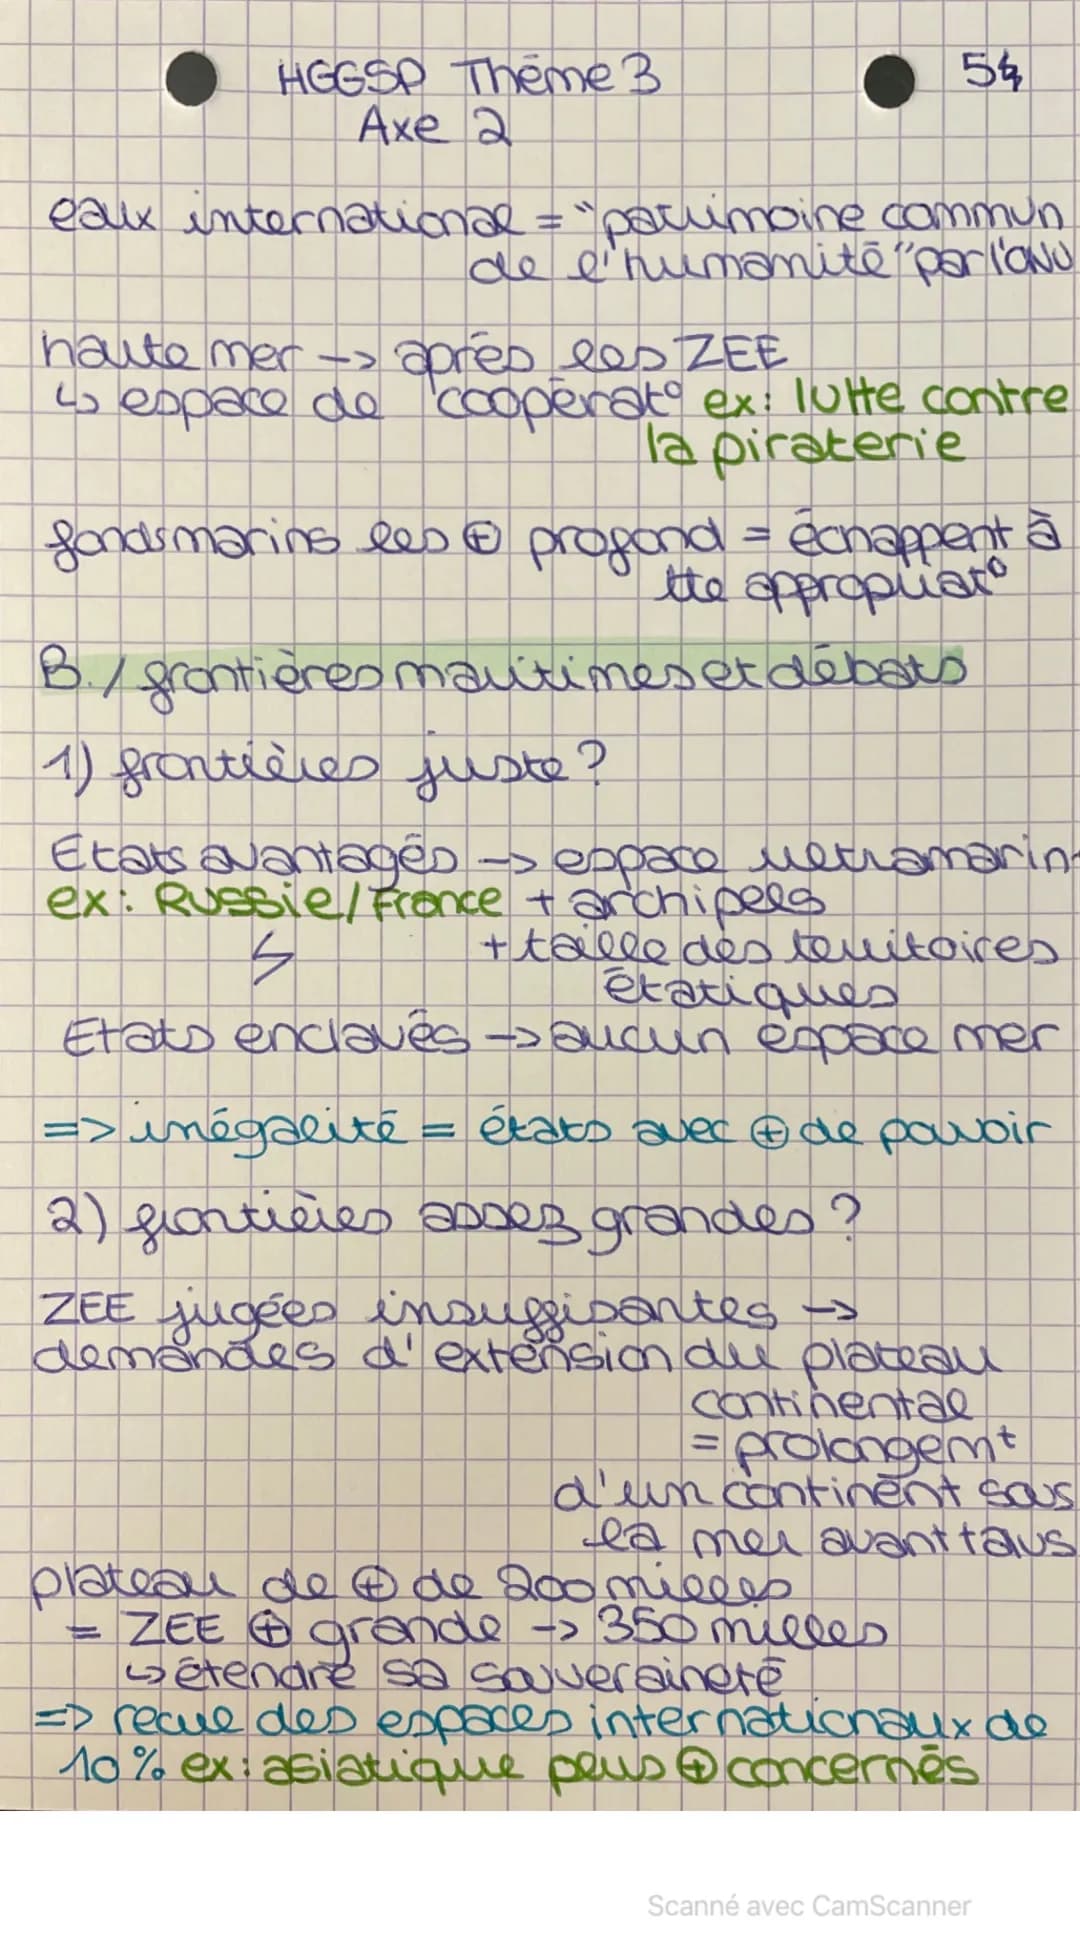 HGGSP Thème 3
54
Axe 2
eaux international = "patrimoine commun
de l'humanité" par l'ONU
haute mer -> après les ZEE
↳ espace de coopérat° ex: lutte contre
la piraterie
fonds marins les ⊕ profond = échappent à
tte appropriat°
B./ frontières maritimes et débats
1) frontières juste?
Etats avantagés -> espace ultramarin
ex: Russie/France + archipels
+ taille des territoires
étatiques
Etats enclavés -> aucun espace mer
=> inégalité = états avec ⊕ de pouvoir
2) frontières assez grandes?
ZEE jugées insuffisantes ->
demandes d'extension du plateau
continental
= prolongemt
d'un continent sous
la mer avant talus
plateau de ⊕ de 200 milles
= ZEE ⊕ grande -> 350 milles
↳ étendre sa souveraineté
=> recul des espaces internationaux de
10% ex: asiatique pays ⊕ concernés
Scanné avec CamScanner